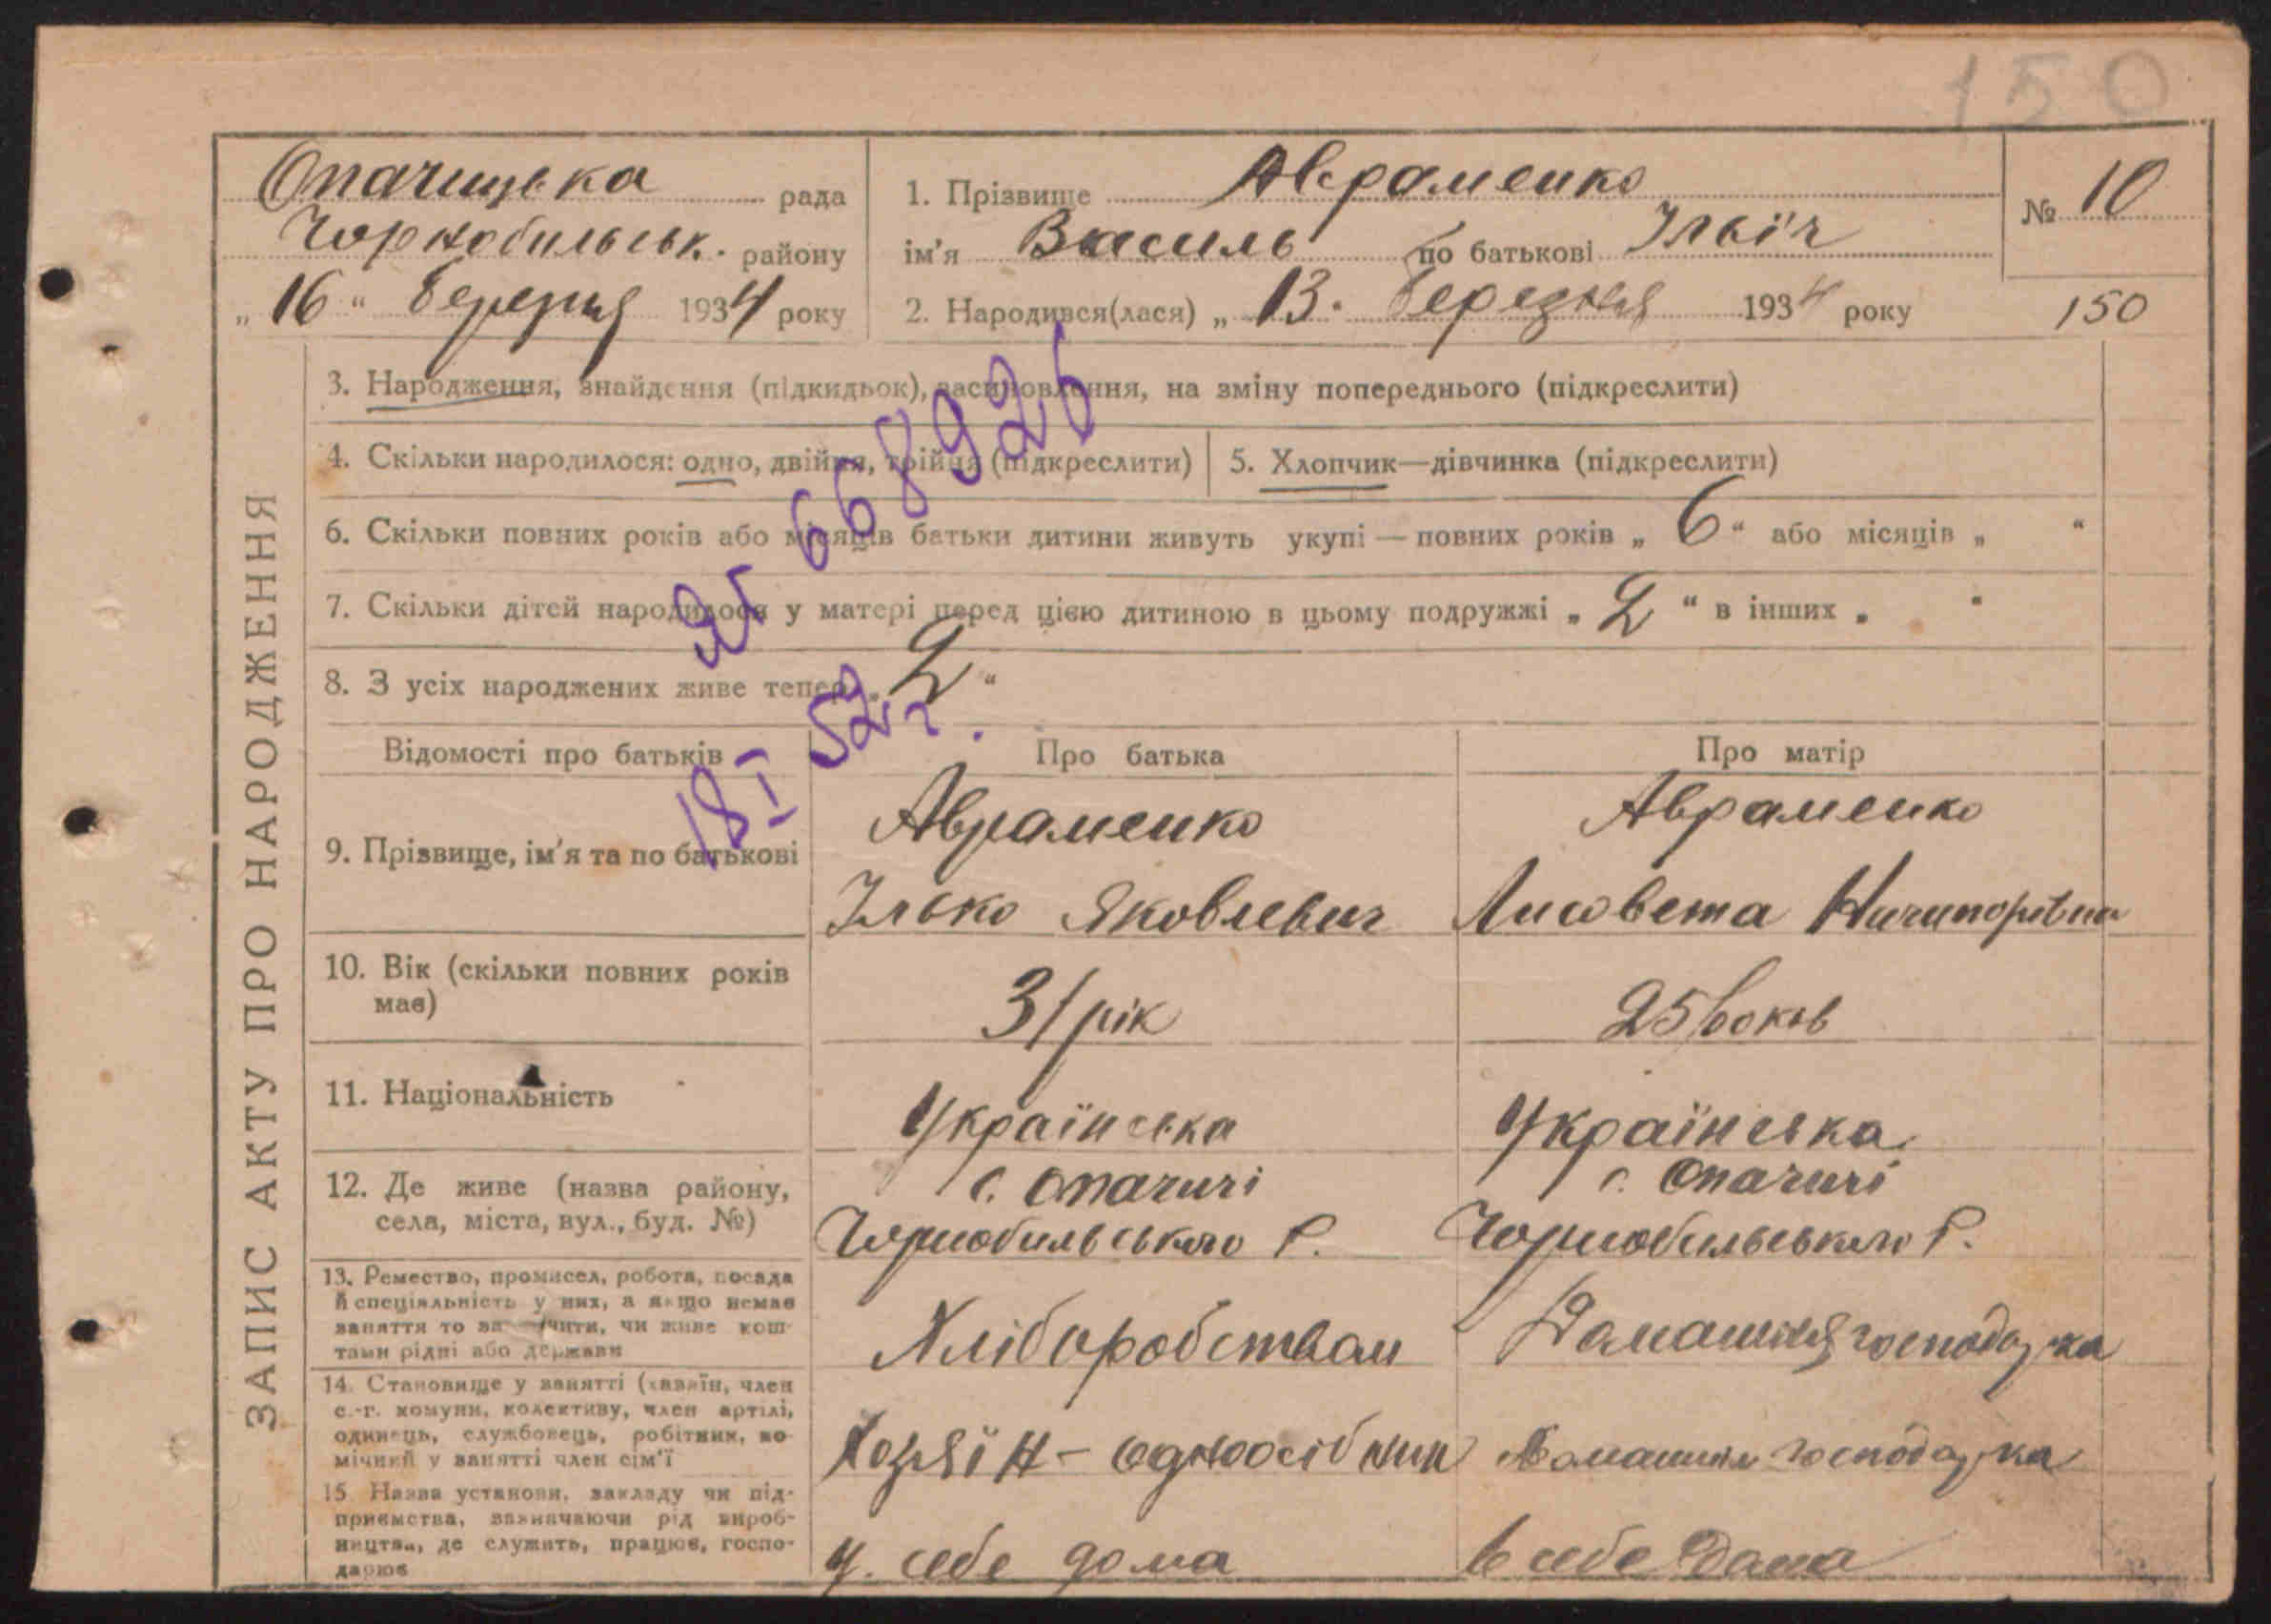 150
Опачицька рада
Чорнобильськ. району
„ 16 " березня 1934 року
1. Прізвище Авраменко
ім'я Василь по батькові Ільїч
2. Народився(лася) „ 13. березня 1934 року
№ 10
150
ЗАПИС АКТУ ПРО НАРОДЖЕННЯ
3. Народження, знайдення (підкидьок), засиновлення, на зміну попереднього (підкреслити)
4. Скільки народилося: одно, двійня, трійня (підкреслити)
5. Хлопчик—дівчинка (підкреслити)
6. Скільки повних років або місяців батьки дитини живуть укупі — повних років „ 6 " або місяців „ "
7. Скільки дітей народилося у матері перед цією дитиною в цьому подружжі „ 2 " в інших „ "
8. З усіх народжених живе тепер „ 2 "
668926
18 I 52 г.
Відомості про батьків
Про батька
Про матір
9. Прізвище, ім'я та по батькові
Авраменко
Ілько Яковлевич
Авраменко
Лисовета Ничипорівна
10. Вік (скільки повних років
має)
31 рік
25
11. Національність
Українська
Українська
12. Де живе (назва району,
села, міста, вул., буд. №)
с. Опачичі
Чорнобильського Р.
с. Опачичі
Чорнобильського Р.
13. Ремество, промисел, робота, посада
й спеціяльність у них, а якщо немає
заняття то чи живе кош-
тами рідні або держави
Хліборобством
Домашня господарка
14. Становище у занятті (хазяїн, член
с.-г. комуни, колективу, член артілі,
одинець, службовець, робітник, по-
мічний у занятті член сім'ї
Хозяїн – одноосібник
Домашня господарка
15. Назва установи, закладу чи під-
приємства, зазначаючи рід вироб-
ництва, де служить, працює, госпо-
дарює
у. себе дома
в себе дома